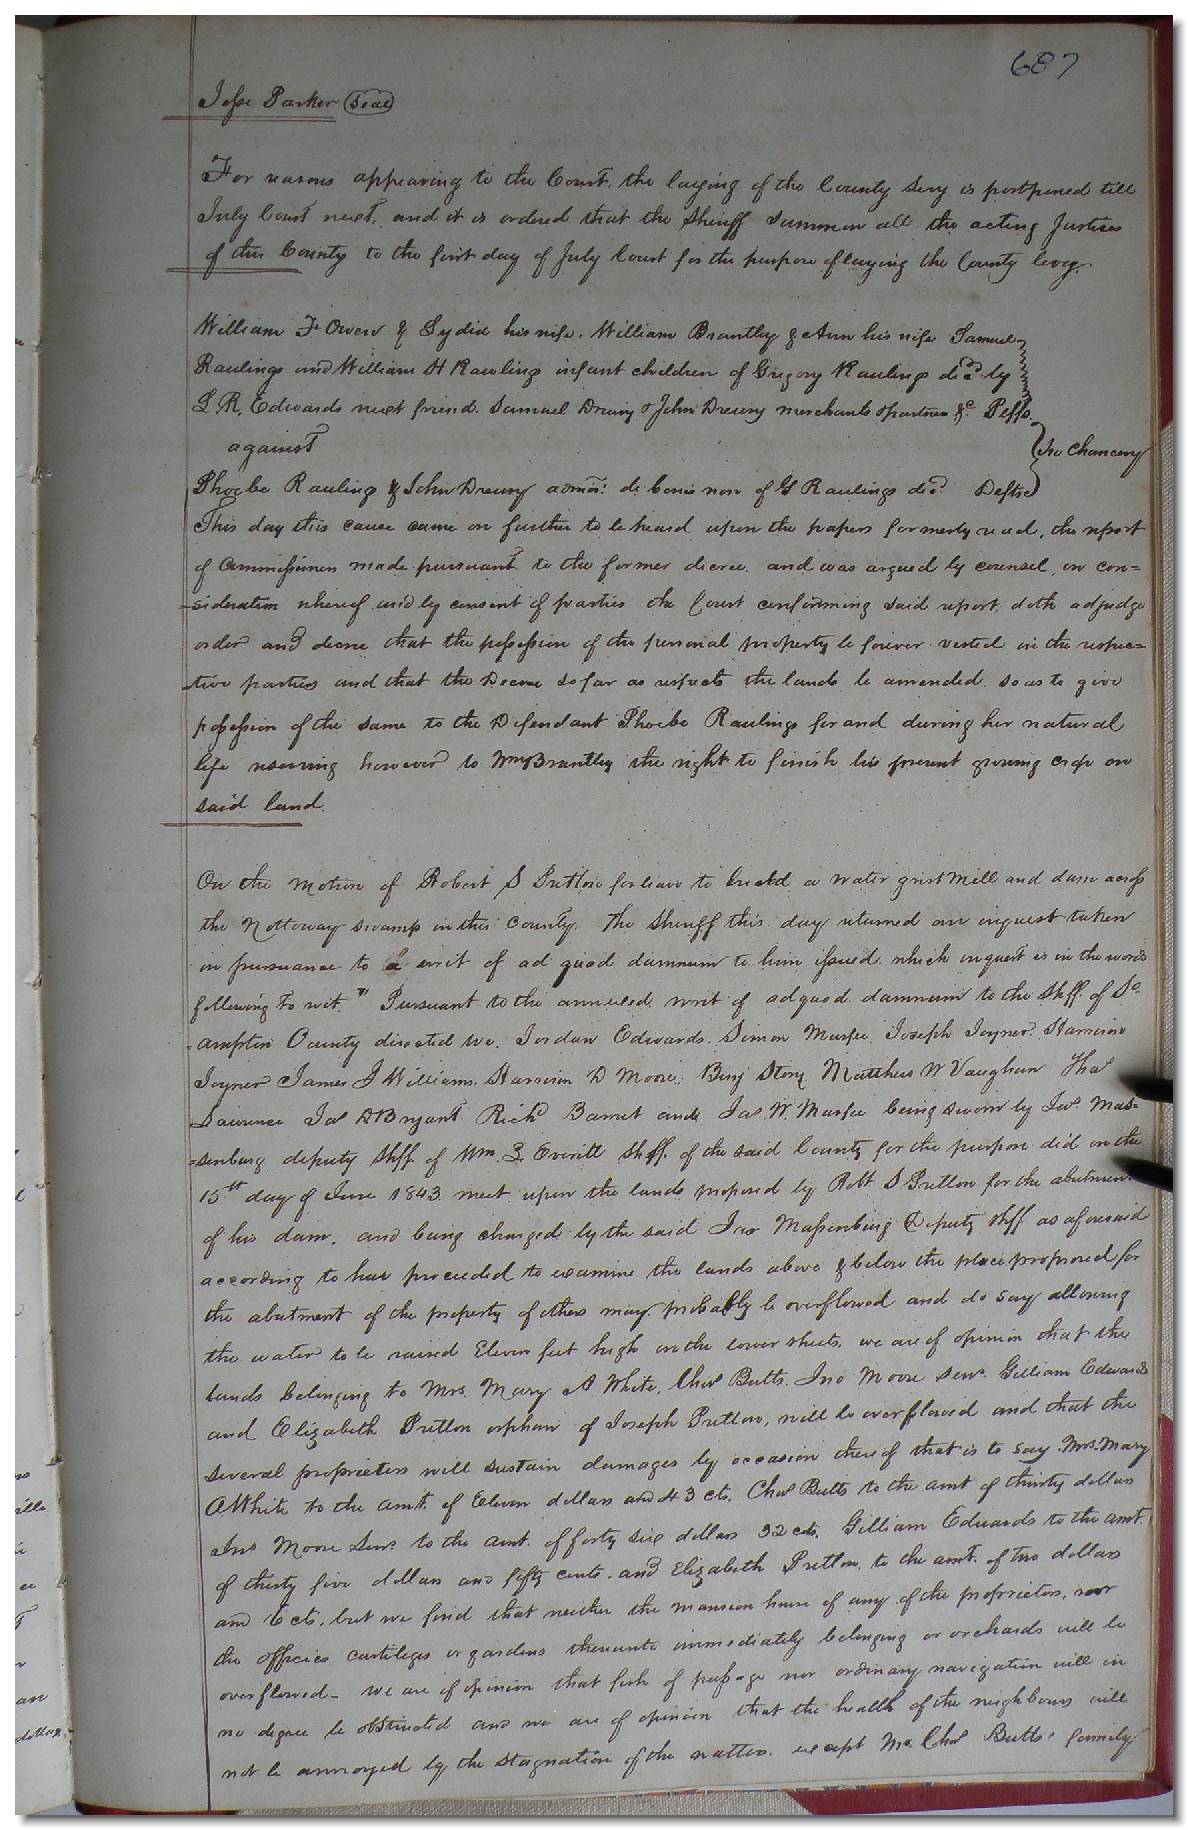 687
Jesse Parker (Seal)
For reasons appearing to the Court, the laying of the County levy is postponed till
July Court next, and it is ordered that the Sheriff Summon all the acting Justices
of this County to the first day of July Court for the purpose of laying the County levy.
William F Owen & Lydid his wife. William Brantley & Ann his wife Samuel
Raulings and William H Rawlings infant children of Gregory Raulings decd by
J. R. Edwards next friend. Samuel Drewry & John Drewry merchants & partners &c. Peffs.
against
In Chancery
Phoebe Raulings & John Drewry admr. de bonis non of G Raulings decd. Defts
This day this cause came on further to be heard upon the papers formerly read, the report
of Commissioners made pursuant to the former decree, and was argued by counsel, on con=
=sideration whereof and by consent of parties the Court confirming said report, doth adjudge
order and decree that the possession of the personal property be forever vested in the respec=
-tive parties and that the Decree so far as respects the lands be amended so as to give
possession of the same to the Defendant Phoebe Raulings for and during her natural
life reserving however to Wm Brantley the right to finish his present growing crop on
said land.
On the motion of Robert S Pretlow for leave to build a water grist Mill and dam across
the Nottoway swamp in this County. The Sheriff this day returned an inquest taken
in pursuance to a writ of ad quod damnum to him issued which inquest is in the words
following to wit. " Pursuant to the annexed writ of ad quod damnum to the Shff. of So.
-ampton County directed we. Jordan Edwards. Simon Murfee Joseph Joyner. Harrison
Joyner James J Williams. Harrison D Moore. Benj Story Matthew W Vaughan Thos
Lawrence Jas D Bryant Richd Barret and Jas. W. Murfee being sworn by Jno. Mas=
=senburg deputy Shff. of Wm. B. Everitt Shff. of the said County for the purpose did on the
15th day of June 1843 meet upon the lands proposed by Robt. S Pretlow for the abutment
of his dam, and being charged by the said Jno Massenburg Deputy Shff as aforesaid
according to law proceeded to examine the lands above & below the place proposed for
the abutment of the property of others may probably be overflowed and do say allowing
the water to be raised Eleven feet high on the lower sheets, we are of opinion that the
lands belonging to Mrs. Mary A White, Chas Butts. Jno Moore Senr. Gilliam Edwards
and Elizabeth Pretlow orphan of Joseph Pretlow, will be overflowed and that the
several proprietors will sustain damages by occasion thereof that is to say. Mrs. Mary
A White to the amt. of Eleven dollars and 43 cts. Chas Butts to the amt of thirty dollars
Jno Moore Senr. to the amt. of forty six dollars 32 cts. Gilliam Edwards to the amt.
of thirty five dollars and fifty cents. and Elizabeth Pretlow. to the amt. of two dollars
and 6 cts. but we find that neither the mansion house of any of the proprietors, nor
the offices curtileges or gardens thereunto immediately belonging or orchards will be
overflowed - we are of opinion that fish of passage nor ordinary navigation will in
no degree be obstructed and we are of opinion that the health of the neighbours will
not be annoyed by the stagnation of the watter. except Mr. Chas Butts' family